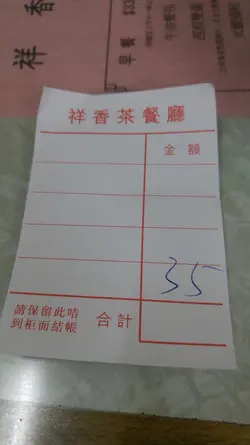 祥香
早餐
祥香茶餐廳
金額
35
請保留此咭
到柜面結帳
合計